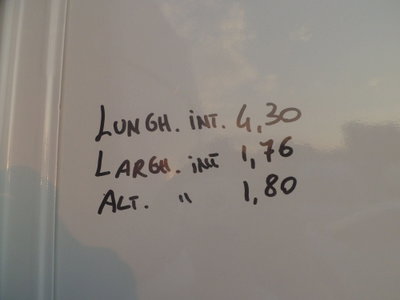 LUNGH. INT. 4,30
LARGH. INT 1,76
ALT. " 1,80